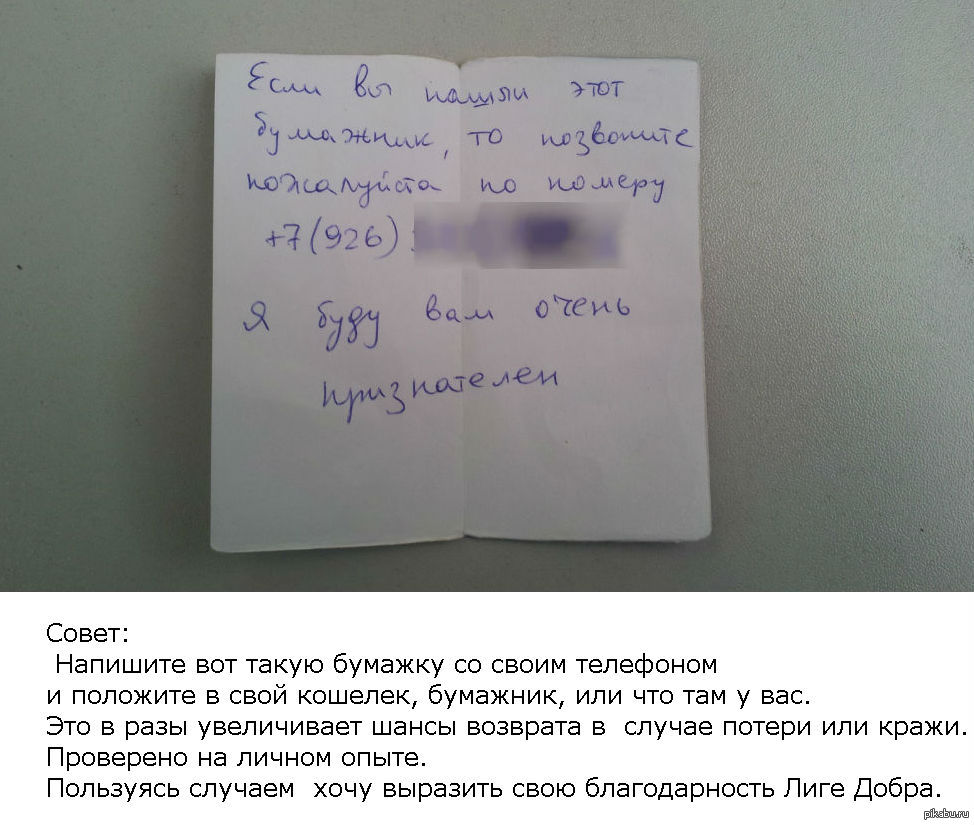 Если вы нашли этот
бумажник, то позвоните
пожалуйста по номеру
+7(926)
Я буду вам очень
признателен
Совет:
Напишите вот такую бумажку со своим телефоном
и положите в свой кошелек, бумажник, или что там у вас.
Это в разы увеличивает шансы возврата в случае потери или кражи.
Проверено на личном опыте.
Пользуясь случаем хочу выразить свою благодарность Лиге Добра.
pikabu.ru